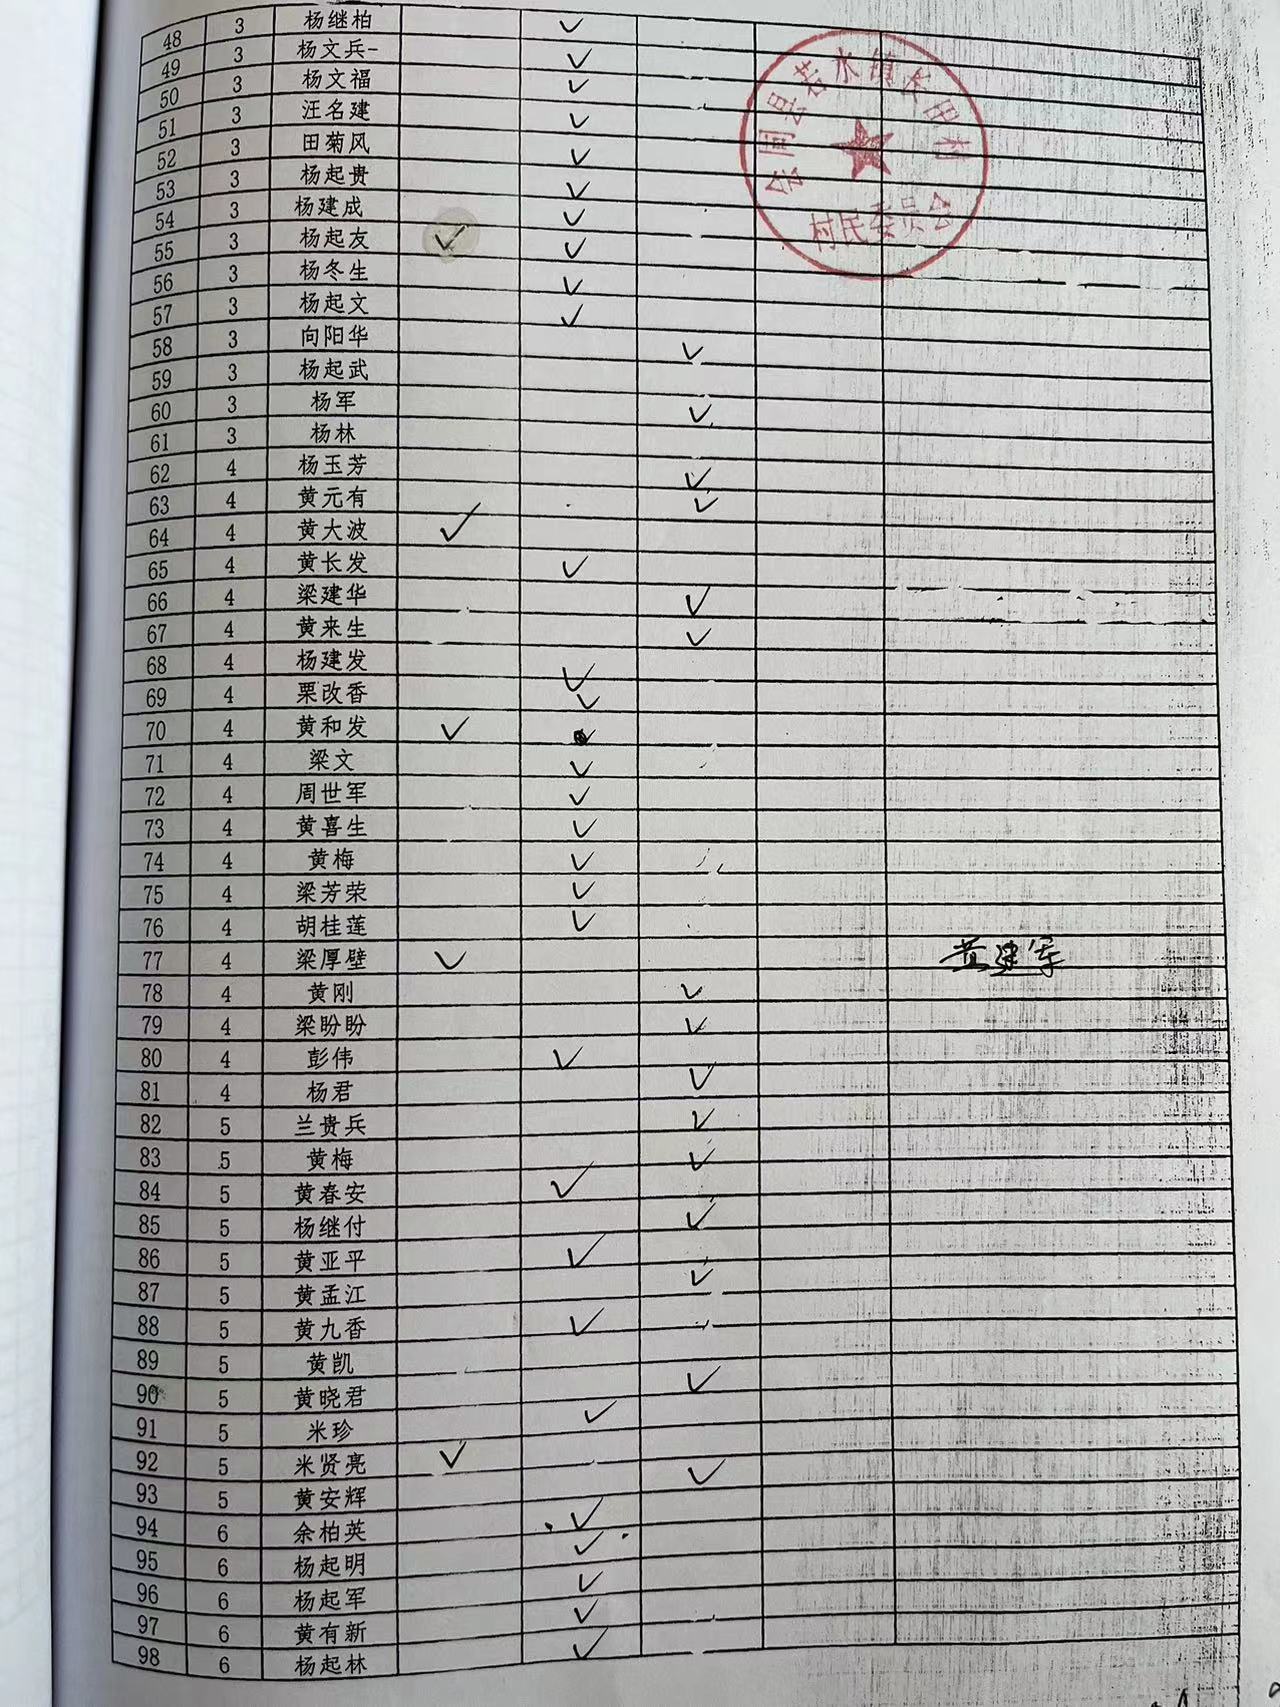 48 3 杨继柏 ✓
49 3 杨文兵- ✓
50 3 杨文福 ✓
51 3 汪名建 ✓
52 3 田菊风 ✓
53 3 杨起贵 ✓
54 3 杨建成 ✓
55 3 杨起友 ✓ ✓
56 3 杨冬生 ✓
57 3 杨起文 ✓
58 3 向阳华 ✓
59 3 杨起武
60 3 杨军 ✓
61 3 杨林
62 4 杨玉芳 ✓
63 4 黄元有 ✓
64 4 黄大波 ✓
65 4 黄长发 ✓
66 4 梁建华 ✓
67 4 黄来生 ✓
68 4 杨建发 ✓
69 4 栗改香 ✓
70 4 黄和发 ✓
71 4 梁文 ✓
72 4 周世军 ✓
73 4 黄喜生 ✓
74 4 黄梅 ✓
75 4 梁芳荣 ✓
76 4 胡桂莲 ✓
77 4 梁厚壁 ✓ 黄建军
78 4 黄刚 ✓
79 4 梁盼盼 ✓
80 4 彭伟 ✓
81 4 杨君 ✓
82 5 兰贵兵 ✓
83 5 黄梅 ✓
84 5 黄春安 ✓
85 5 杨继付 ✓
86 5 黄亚平 ✓
87 5 黄孟江 ✓
88 5 黄九香 ✓
89 5 黄凯
90 5 黄晓君 ✓
91 5 米珍 ✓
92 5 米贤亮 ✓
93 5 黄安辉 ✓
94 6 余柏英 ✓
95 6 杨起明 ✓
96 6 杨起军 ✓
97 6 黄有新 ✓
98 6 杨起林 ✓
会同县若水镇长田村
村民委员会